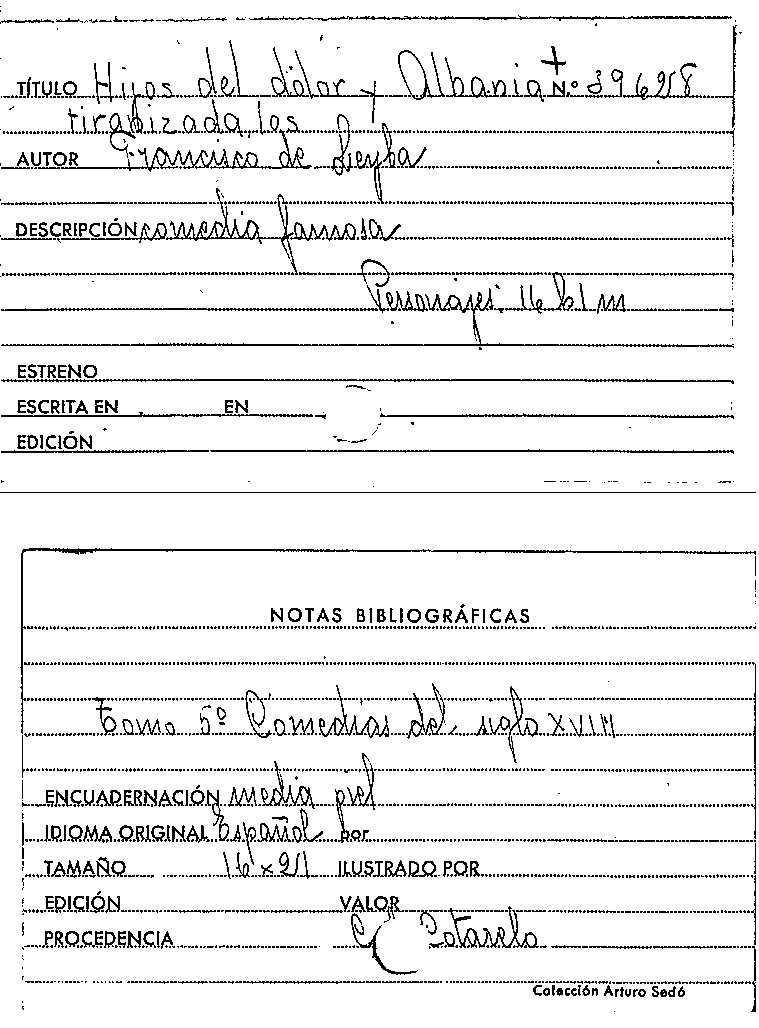 TÍTULO Hijos del dolor y Albania N.º 39628
tiranizada, los
AUTOR Francisco de Leyba
DESCRIPCIÓN comedia famosa
Personajes: 16 h 1 m
ESTRENO
ESCRITA EN EN
EDICIÓN
NOTAS BIBLIOGRÁFICAS
Tomo 5º Comedias del siglo XVIII
ENCUADERNACIÓN media piel
IDIOMA ORIGINAL Español por
TAMAÑO 16 x 21 ILUSTRADO POR
EDICIÓN VALOR
PROCEDENCIA Cotarelo
Colección Arturo Sedó